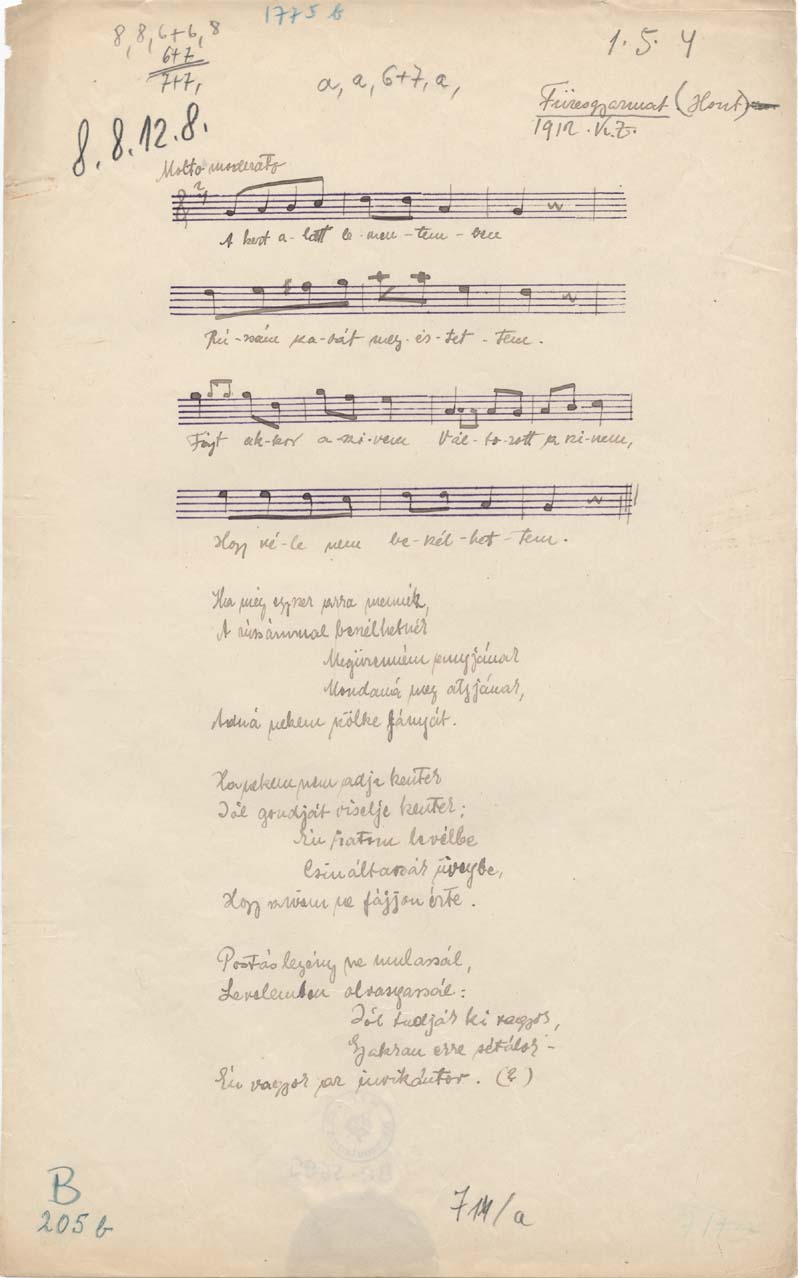 1775 b
8, 8, 6+6, 8
6+7
7+7,
a, a, 6+7, a,
1. 5. 4
Füzesgyarmat (Hont)
1912. K.Z.
8. 8. 12. 8.
Molto moderato
A kert a-latt le-men-tem-ben
Ró-zsám sza-vát meg-és-tet-tem.
Fájt ak-kor a szi-vem Vál-to-zott a szi-nem,
Hogy vé-le nem be-szél-het-tem.
Ha még egyszer arra mennék,
A rózsámmal beszélhetnék
Megizenném annyjának
Mondaná meg attyjának,
Adná nekem szőke lányát.
Ha nekem nem adja kentek
Jól gondját viselje kentek;
Én iratom levélbe
Csináltassák üvegbe,
Hogy szivem ne fájjon érte.
Postás legény ne mulassál,
Levelemben olvasgassál:
Jól tudják ki vagyok,
Gyakran erre sétálok -
Én vagyok az (?)
B
205 b
714/a